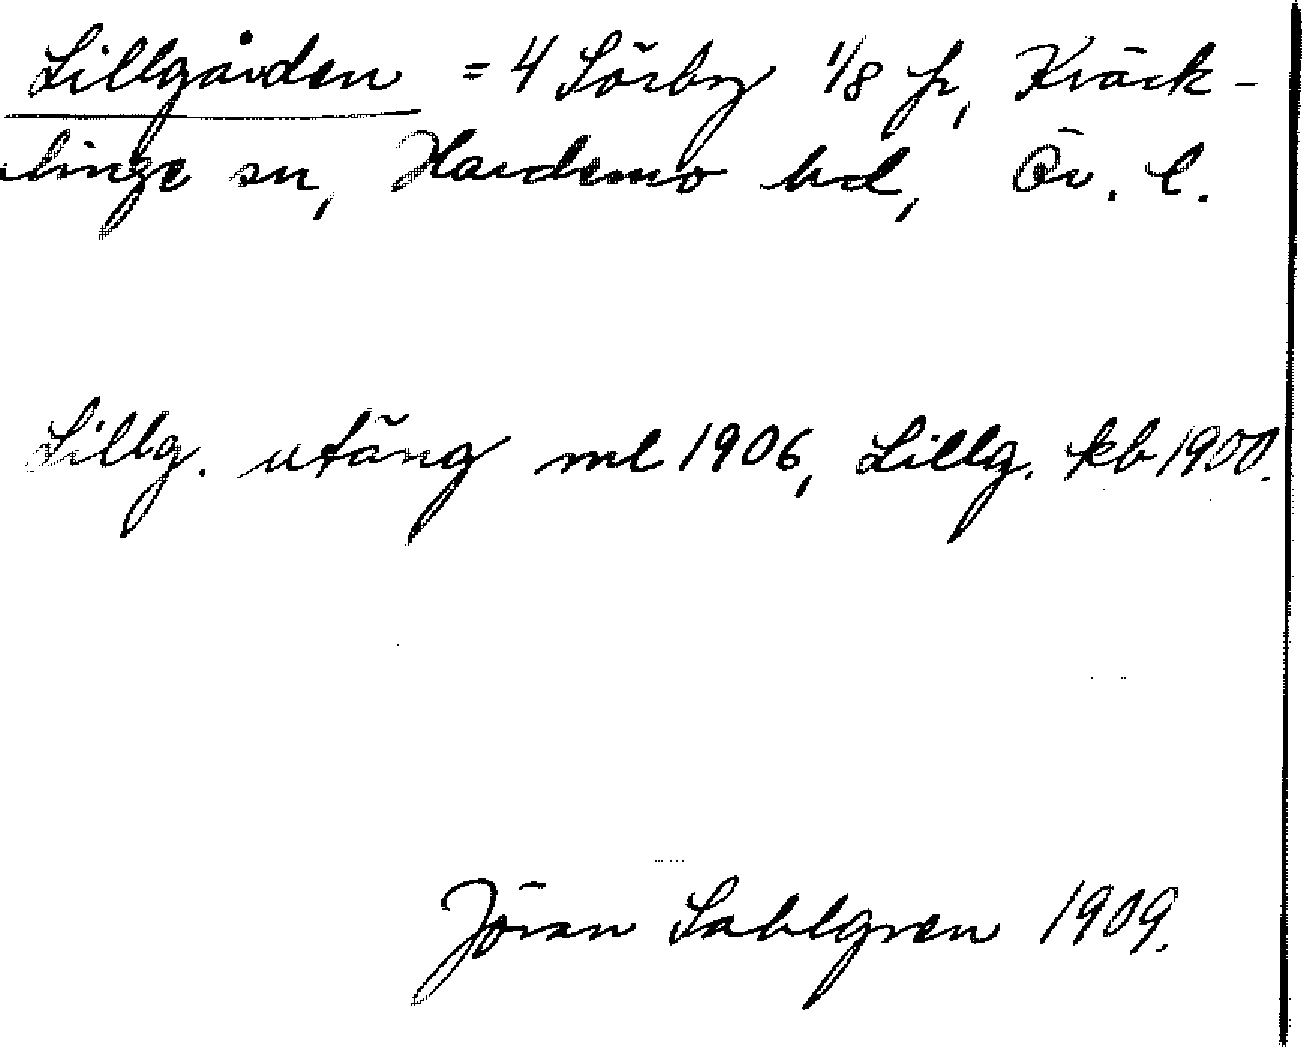 Lillgården = 4 Sörby 1/8 fr, Kräck-
linge sn, Hardemo hd, Ör. l.
Lillg. utäng ml 1906, Lillg. kb 1900.
Jöran Sahlgren 1909.